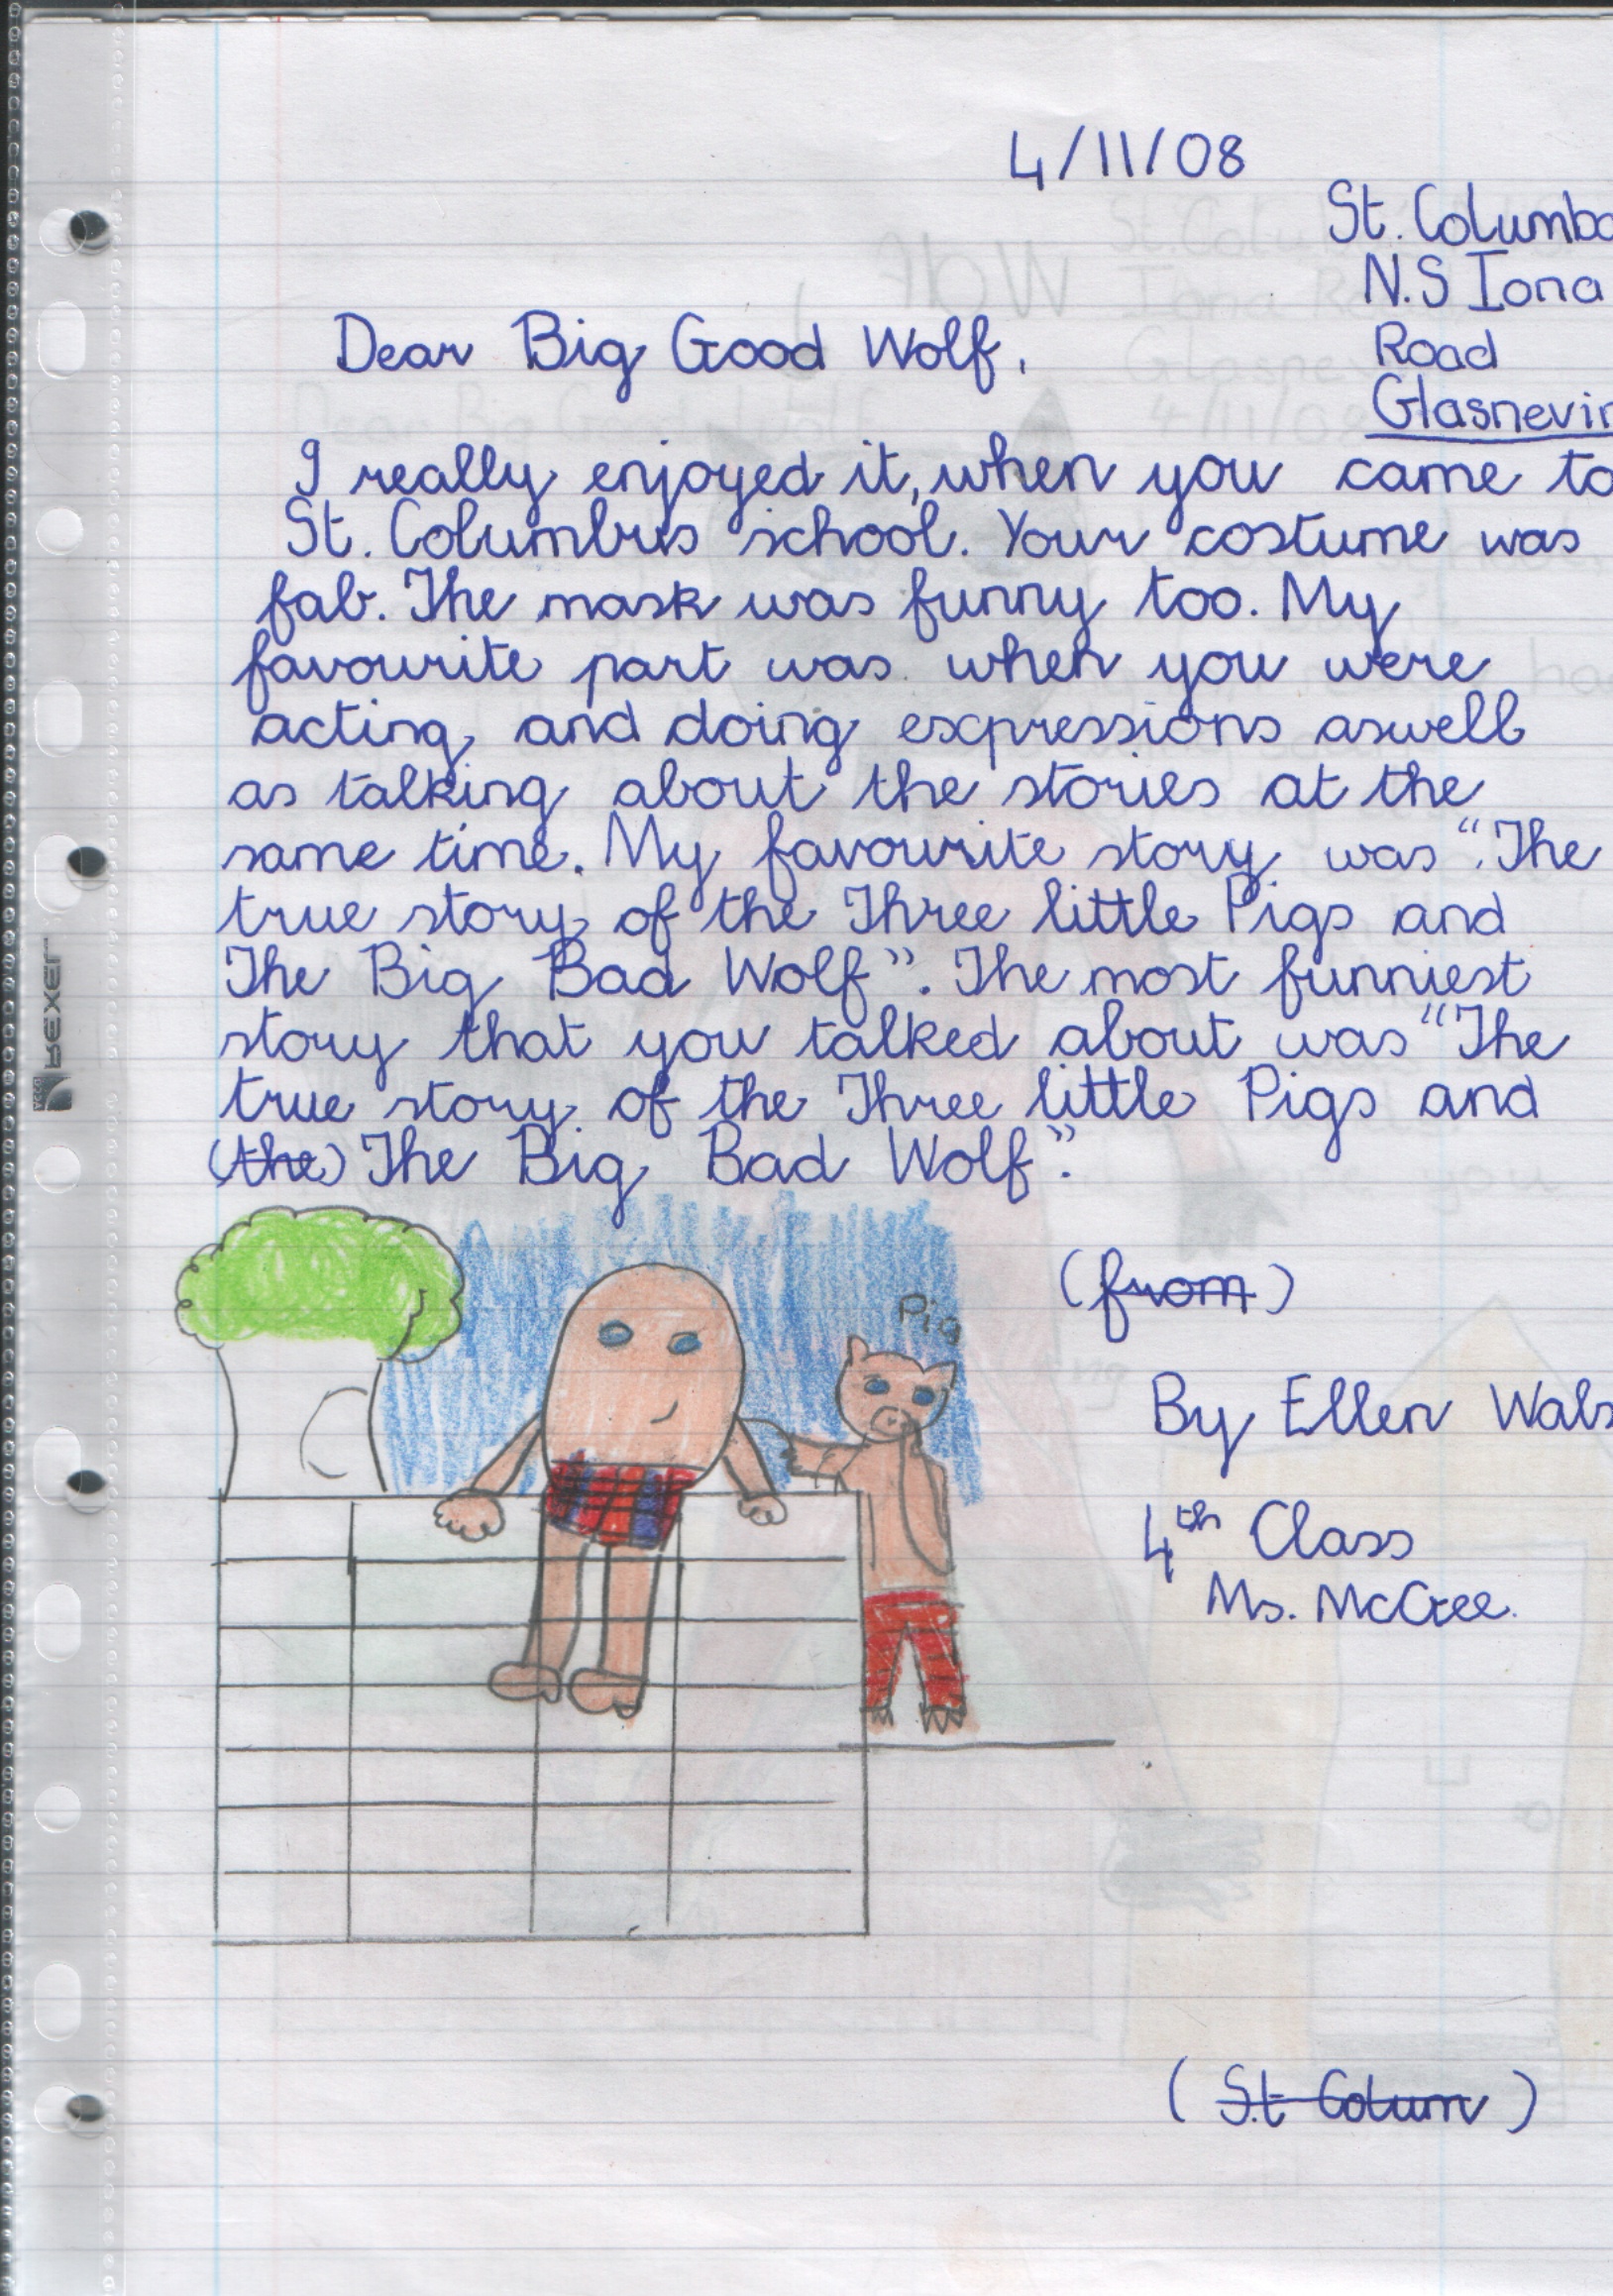 4/11/08
St. Columba
N.S Iona
Road
Glasnevin
Dear Big Good Wolf,
I really enjoyed it, when you came to
St. Columbus school. Your costume was
fab. The mask was funny too. My
favourite part was when you were
acting and doing expressions aswell
as talking about the stories at the
same time. My favourite story was "The
true story of the Three little Pigs and
The Big Bad Wolf". The most funniest
story that you talked about was "The
true story of the Three little Pigs and
(the) The Big Bad Wolf".
Pig
(from)
By Ellen Wals
4th Class
Ms. McGee.
(S.t Colum)
REXEL